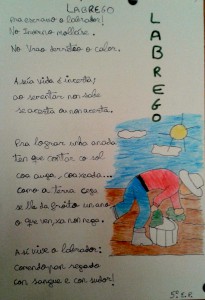 LABREGO
¡na escravo o labrador!
No Inverno mollase.
No Vrao derrétao o calor.
A súa vida é incerta;
ao sementar non sabe
se acerta ou non acerta.
Pra lograr unha anada
ten que contar co sol
coa auga, coa xeada...
como a terra cega
se lle dá froito un ano
o que ven, xa non nega.
Así vive o labrador:
Comendo pan regado
con sangue e con sudor!
LABREGO
5º E.P.